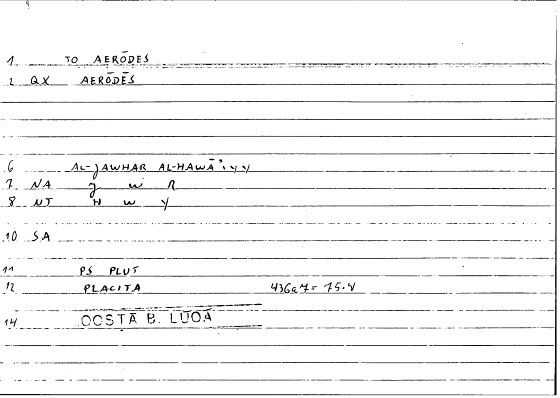 1 TO AERŌDES
2 QX AERŌDĒS
6 AL-JAWHAR AL-HAWĀ'iyy
7 NA J W R
8 NT H W Y
10 SA
11 PS PLUT
12 PLACITA 436a7= 15.4
14 COSTA B. LUCA